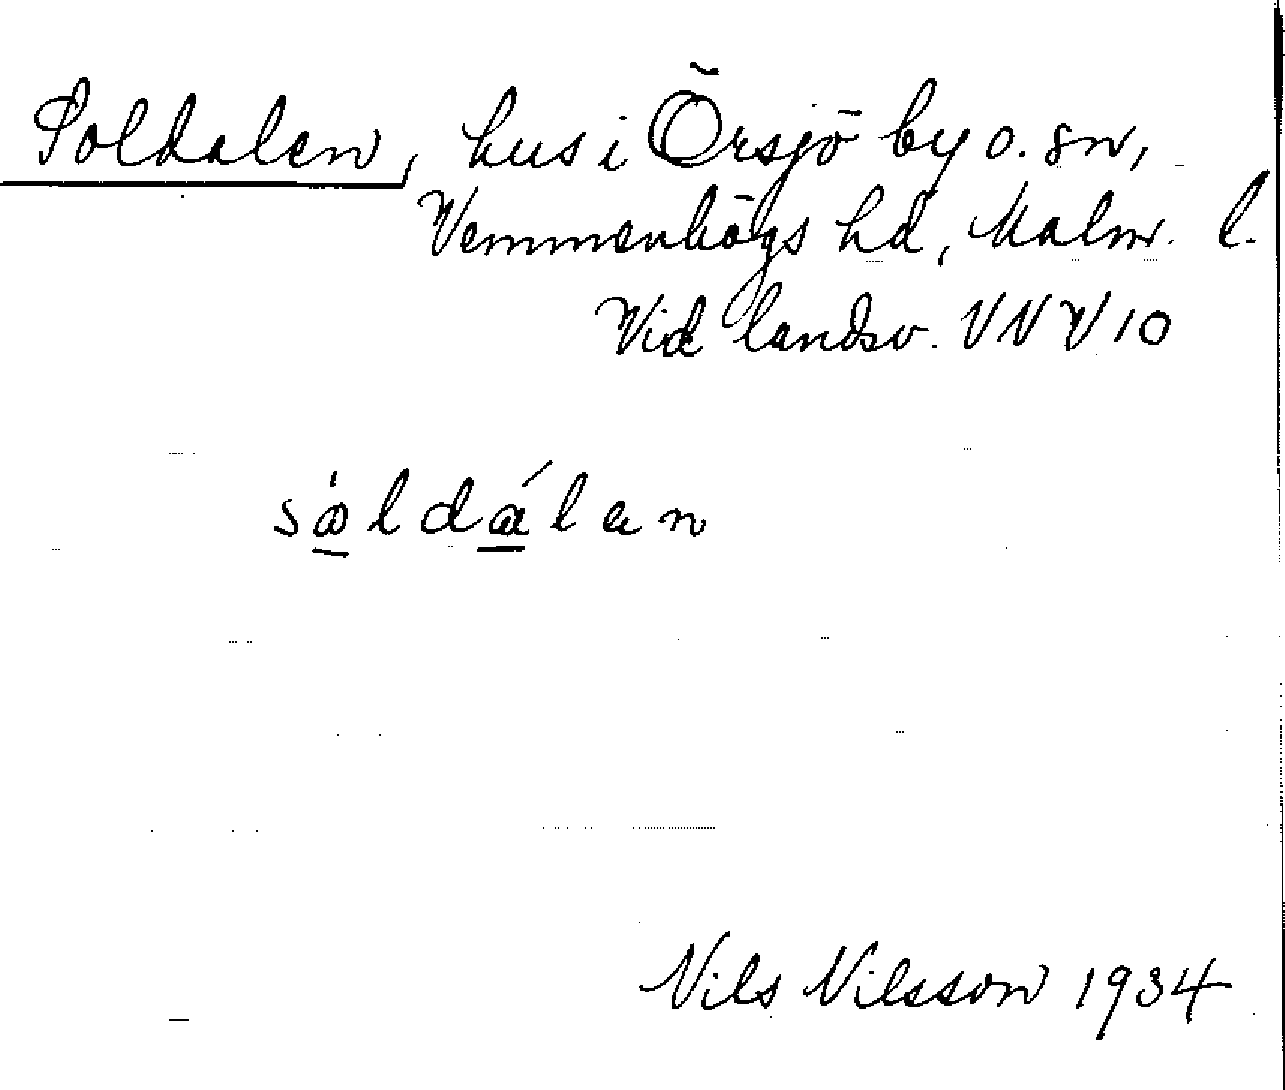 Soldalen, hus i Örsjö by o. sn,
Vemmenhögs hd, Malm. l.
Vid landsv. VNV 10
såldálan
Nils Nilsson 1934